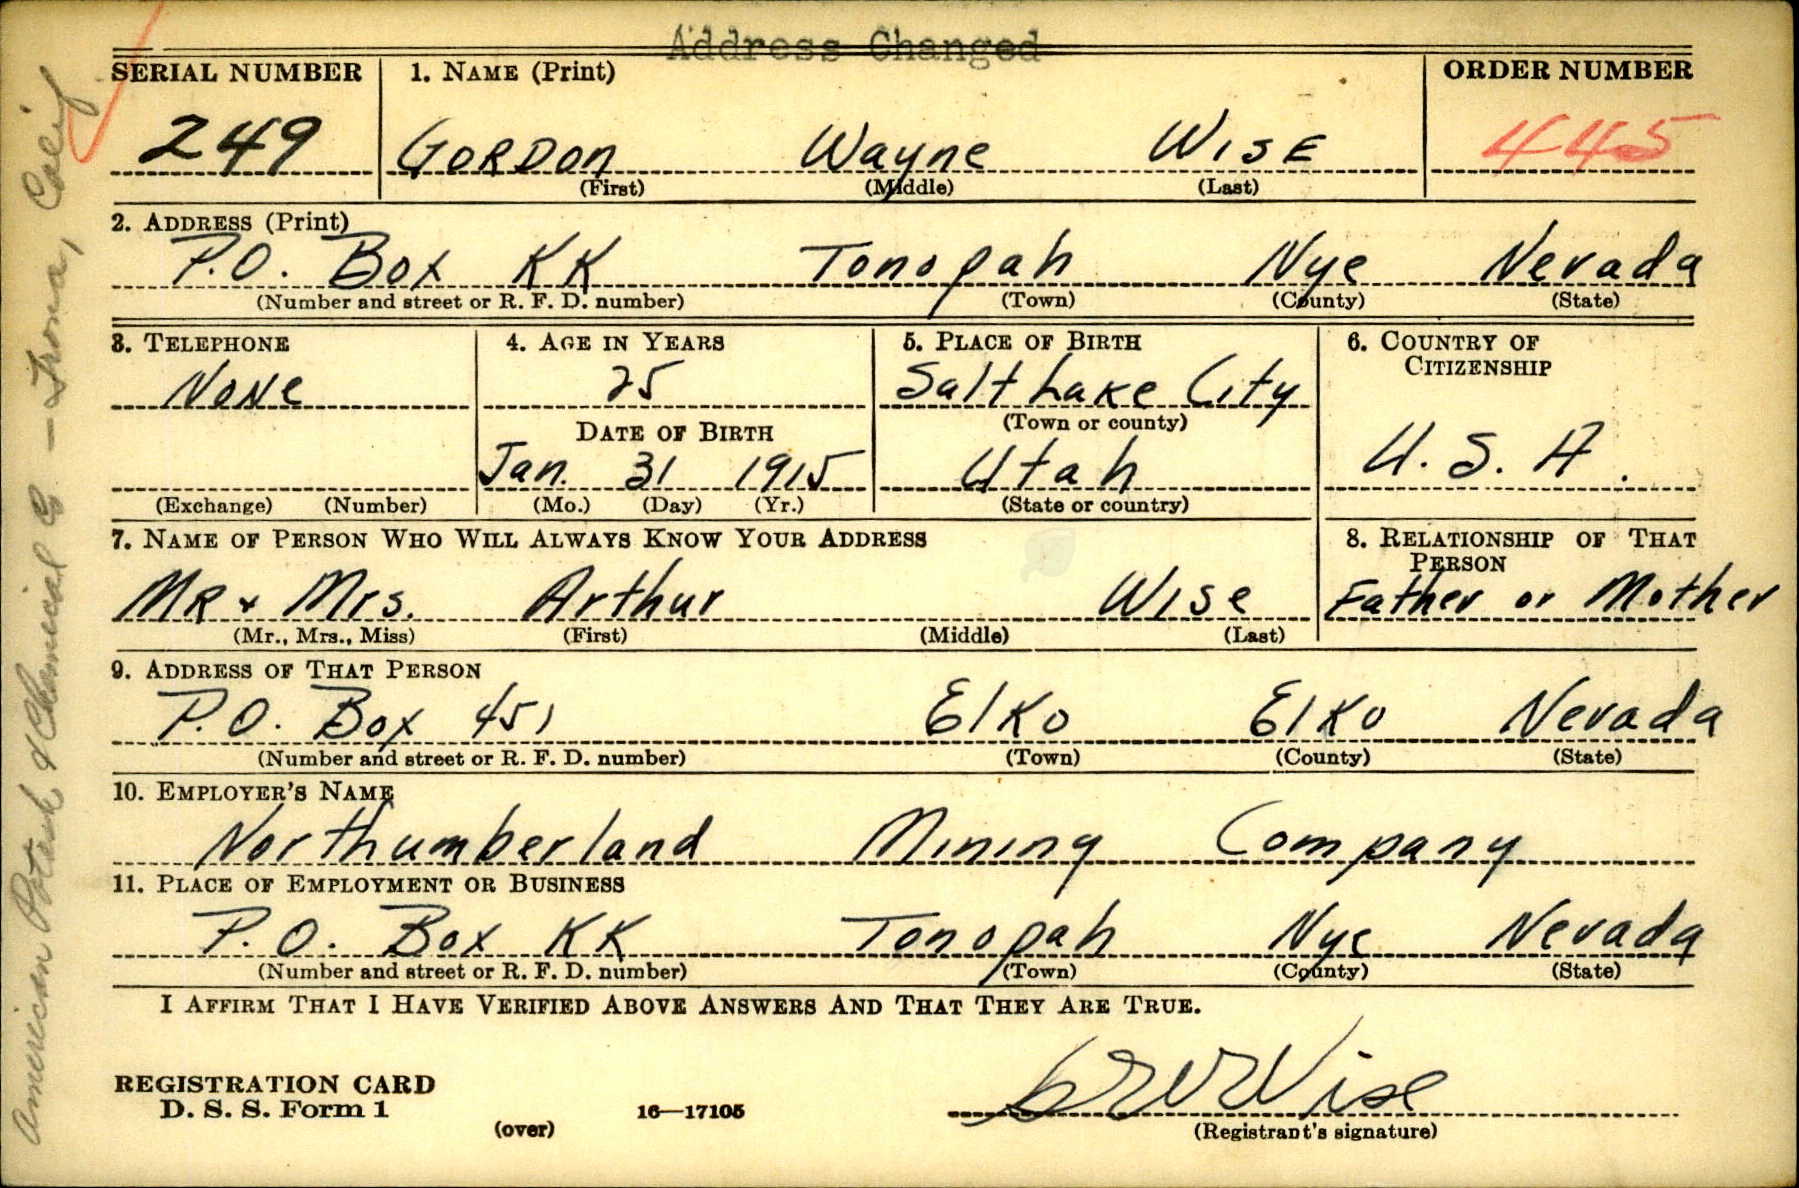 Address Changed
SERIAL NUMBER 1. NAME (Print) ORDER NUMBER
249 GORDON Wayne WISE 445
(First) (Middle) (Last)
2. ADDRESS (Print)
P.O. Box KK Tonopah Nye Nevada
(Number and street or R. F. D. number) (Town) (County) (State)
3. TELEPHONE 4. AGE IN YEARS 5. PLACE OF BIRTH 6. COUNTRY OF
CITIZENSHIP
None 25 Salt Lake City
(Town or county)
DATE OF BIRTH
U. S. A.
Jan. 31 1915 Utah
(Exchange) (Number) (Mo.) (Day) (Yr.) (State or country)
7. NAME OF PERSON WHO WILL ALWAYS KNOW YOUR ADDRESS 8. RELATIONSHIP OF THAT
PERSON
MR + Mrs. Arthur Wise Father or Mother
(Mr., Mrs., Miss) (First) (Middle) (Last)
9. ADDRESS OF THAT PERSON
P.O. Box 451 Elko Elko Nevada
(Number and street or R. F. D. number) (Town) (County) (State)
10. EMPLOYER'S NAME
Northumberland Mining Company
11. PLACE OF EMPLOYMENT OR BUSINESS
P.O. Box KK Tonopah Nye Nevada
(Number and street or R. F. D. number) (Town) (County) (State)
I AFFIRM THAT I HAVE VERIFIED ABOVE ANSWERS AND THAT THEY ARE TRUE.
REGISTRATION CARD
D. S. S. Form 1
(over) 16—17105
G W Wise
(Registrant's signature)
American Potash & Chemical Co — Trona, Calif